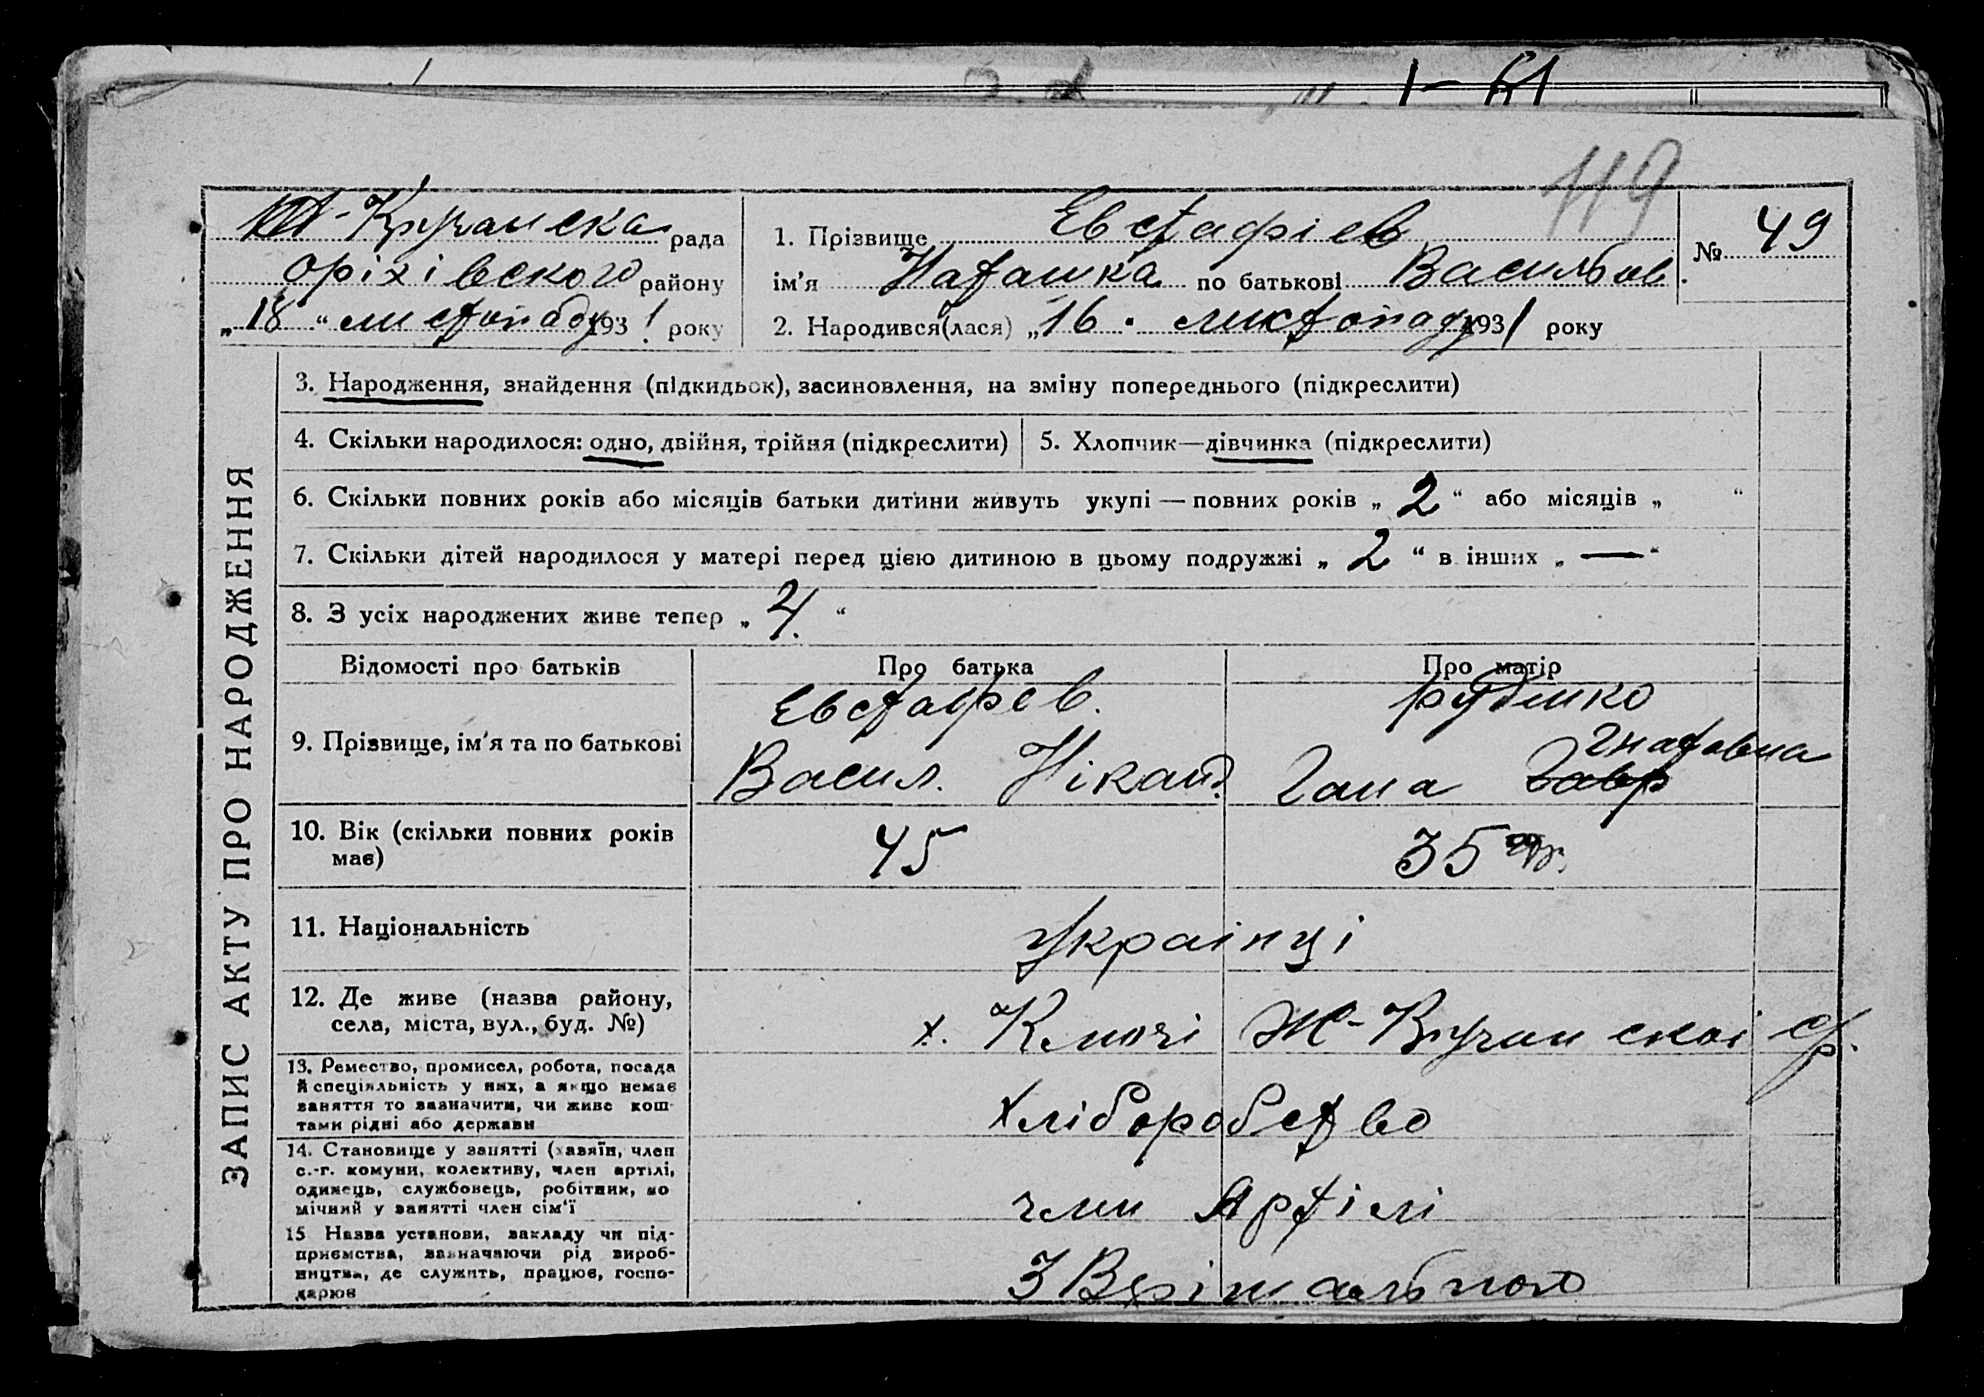 1-61
119
Ж-Кручанська рада
оріхівского району
„18“ листопаду 1931 року
1. Прізвище Евстафієв
ім'я Наташка по батькові Васильов.
№ 49
2. Народився(лася) „16. листопаду 1931 року
ЗАПИС АКТУ ПРО НАРОДЖЕННЯ
3. Народження, знайдення (підкидьок), засиновлення, на зміну попереднього (підкреслити)
4. Скільки народилося: одно, двійня, трійня (підкреслити)
5. Хлопчик—дівчинка (підкреслити)
6. Скільки повних років або місяців батьки дитини живуть укупі — повних років „2“ або місяців „ “
7. Скільки дітей народилося у матері перед цією дитиною в цьому подружжі „2“ в інших „—“
8. З усіх народжених живе тепер „4.“
Відомості про батьків Про батька Про матір
9. Прізвище, ім'я та по батькові
Евстафев.
Васил. Ніканд.
Руденко
Гнатовна
Гана Гавр
10. Вік (скільки повних років
має)
45
35
11. Національність
Українці
12. Де живе (назва району,
села, міста, вул., буд. №)
х. Ключі Ж-Кручанскоі с/р.
13. Ремество, промисел, робота, посада
й спеціяльність у них, а якщо немає
заняття то зазначити, чи живе кош-
тами рідні або держави
Хліборобство
14. Становище у занятті (хазяїн, член
с.-г. комуни, колективу, член артілі,
одинець, службовець, робітник, по
мічний у занятті член сім'ї
член Артілі
15 Назва установи, закладу чи під-
приємства, зазначаючи рід вироб-
ництва, де служить, працює, госпо-
дарює